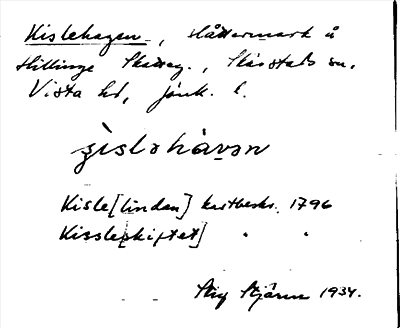 Kislehagen, slåttermark å
Hillinge Skatteg., Skärstads sn.
Vista hd, jönk. l.
Kisle[linden] kartbeskr. 1796
Kissle[skiftet] " "
Stig 1934.